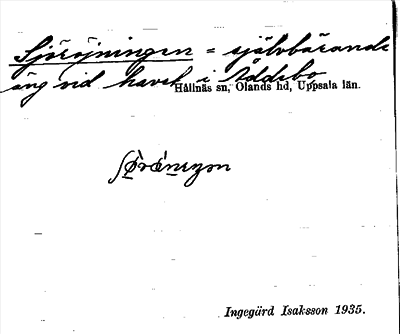 Sjöröjningen = självbärande
äng vid havet i Åddebo
Hållnäs sn, Olands hd, Uppsala län.
Ingegärd Isaksson 1935.